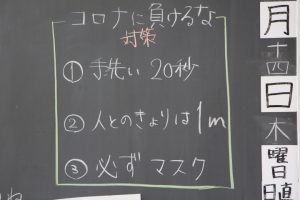 コロナに負けるな
対策
① 手洗い 20秒
② 人とのきょりは1m
③ 必ず マスク
月
十四
日
木
曜日
日直